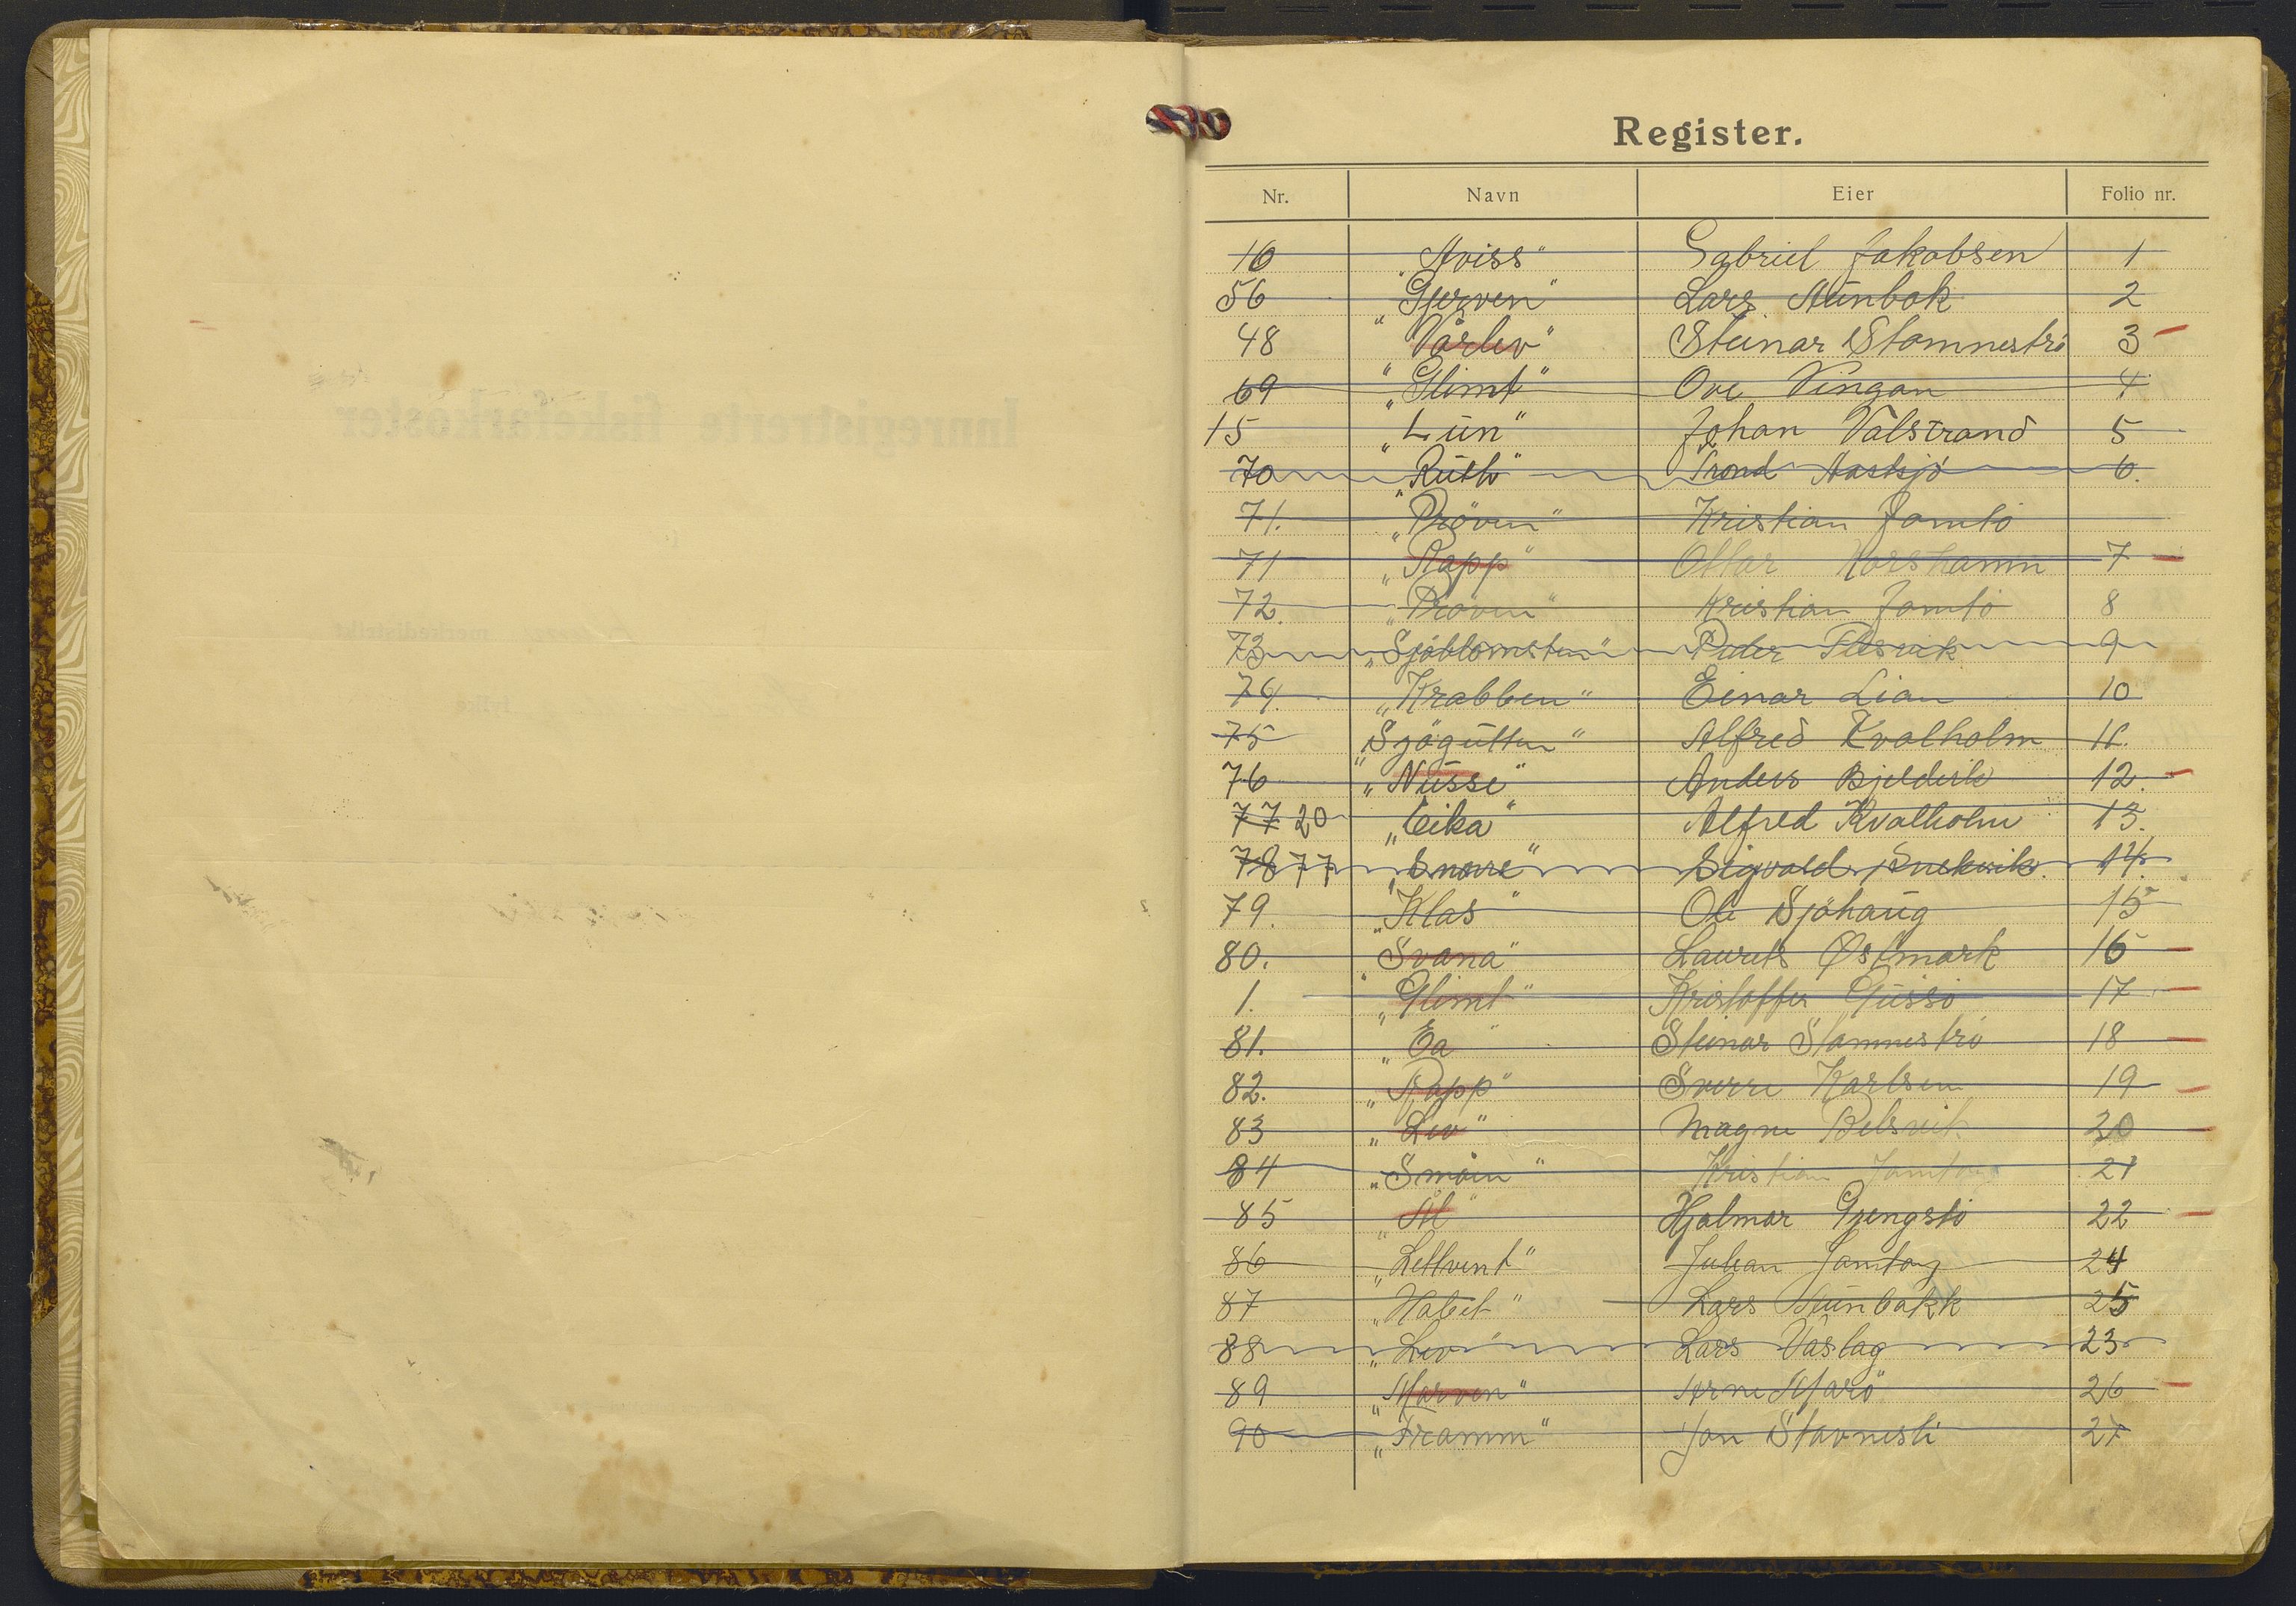 Register.
Nr. Navn Eier Folio nr.
16 "Aviss" Gabriel Jakobsen 1
56 "Gjerven" Lars Aunbak 2
48 "Vårliv" Steinar Stamnestrø 3
69 "Glimt" Ove Vingan 4
15 "Lun" Johan Valstrand 5
70 "Ruth" Trond 6.
71. "Prøven" Kristian Jamtø
71 "Rapp" Ottar Korshamn 7
72. "Prøven" Kristian Jamtø 8
73 "Sjøblomsten" Peder Flesvik 9
74. "Krabben" Einar Lian 10
75 "Sjøgutten" Alfred Kvalholm 11.
76 "Nusse" Anders 12.
77 20 "Eika" Alfred Kvalholm 13.
78 77 "Snare" Sigvald 14.
79. "Klas" Ole Sjøhaug 15
80. "Svana" Laurits Østmark 16
1. "Glimt" Kristoffer 17
81. "Ea" Steinar Stamnestrø 18
82. "Rapp" Sverre Karlsen 19
83 "Liv" Magne Belsvik 20
84 "Småen" Kristian 21
85 "Ål" Hjalmar Grengstø 22
86 "Lettvint" Julian 24
87 "Håbet" Lars Aunbakk 25
88 "Liv" Lars Våslag 23
89 "Marven" Arne 26
90 "Framm" Jon Stavnesli 27
Innregistrerte fiskefarkoster
merkedistrikt
fylke